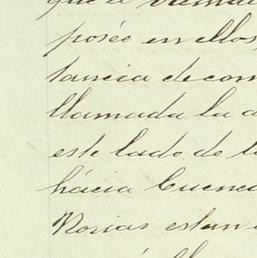 que el
posée en ellos,
tancia de com
llamada la a
este lado de l
hácia Cuenca
Rosias estan